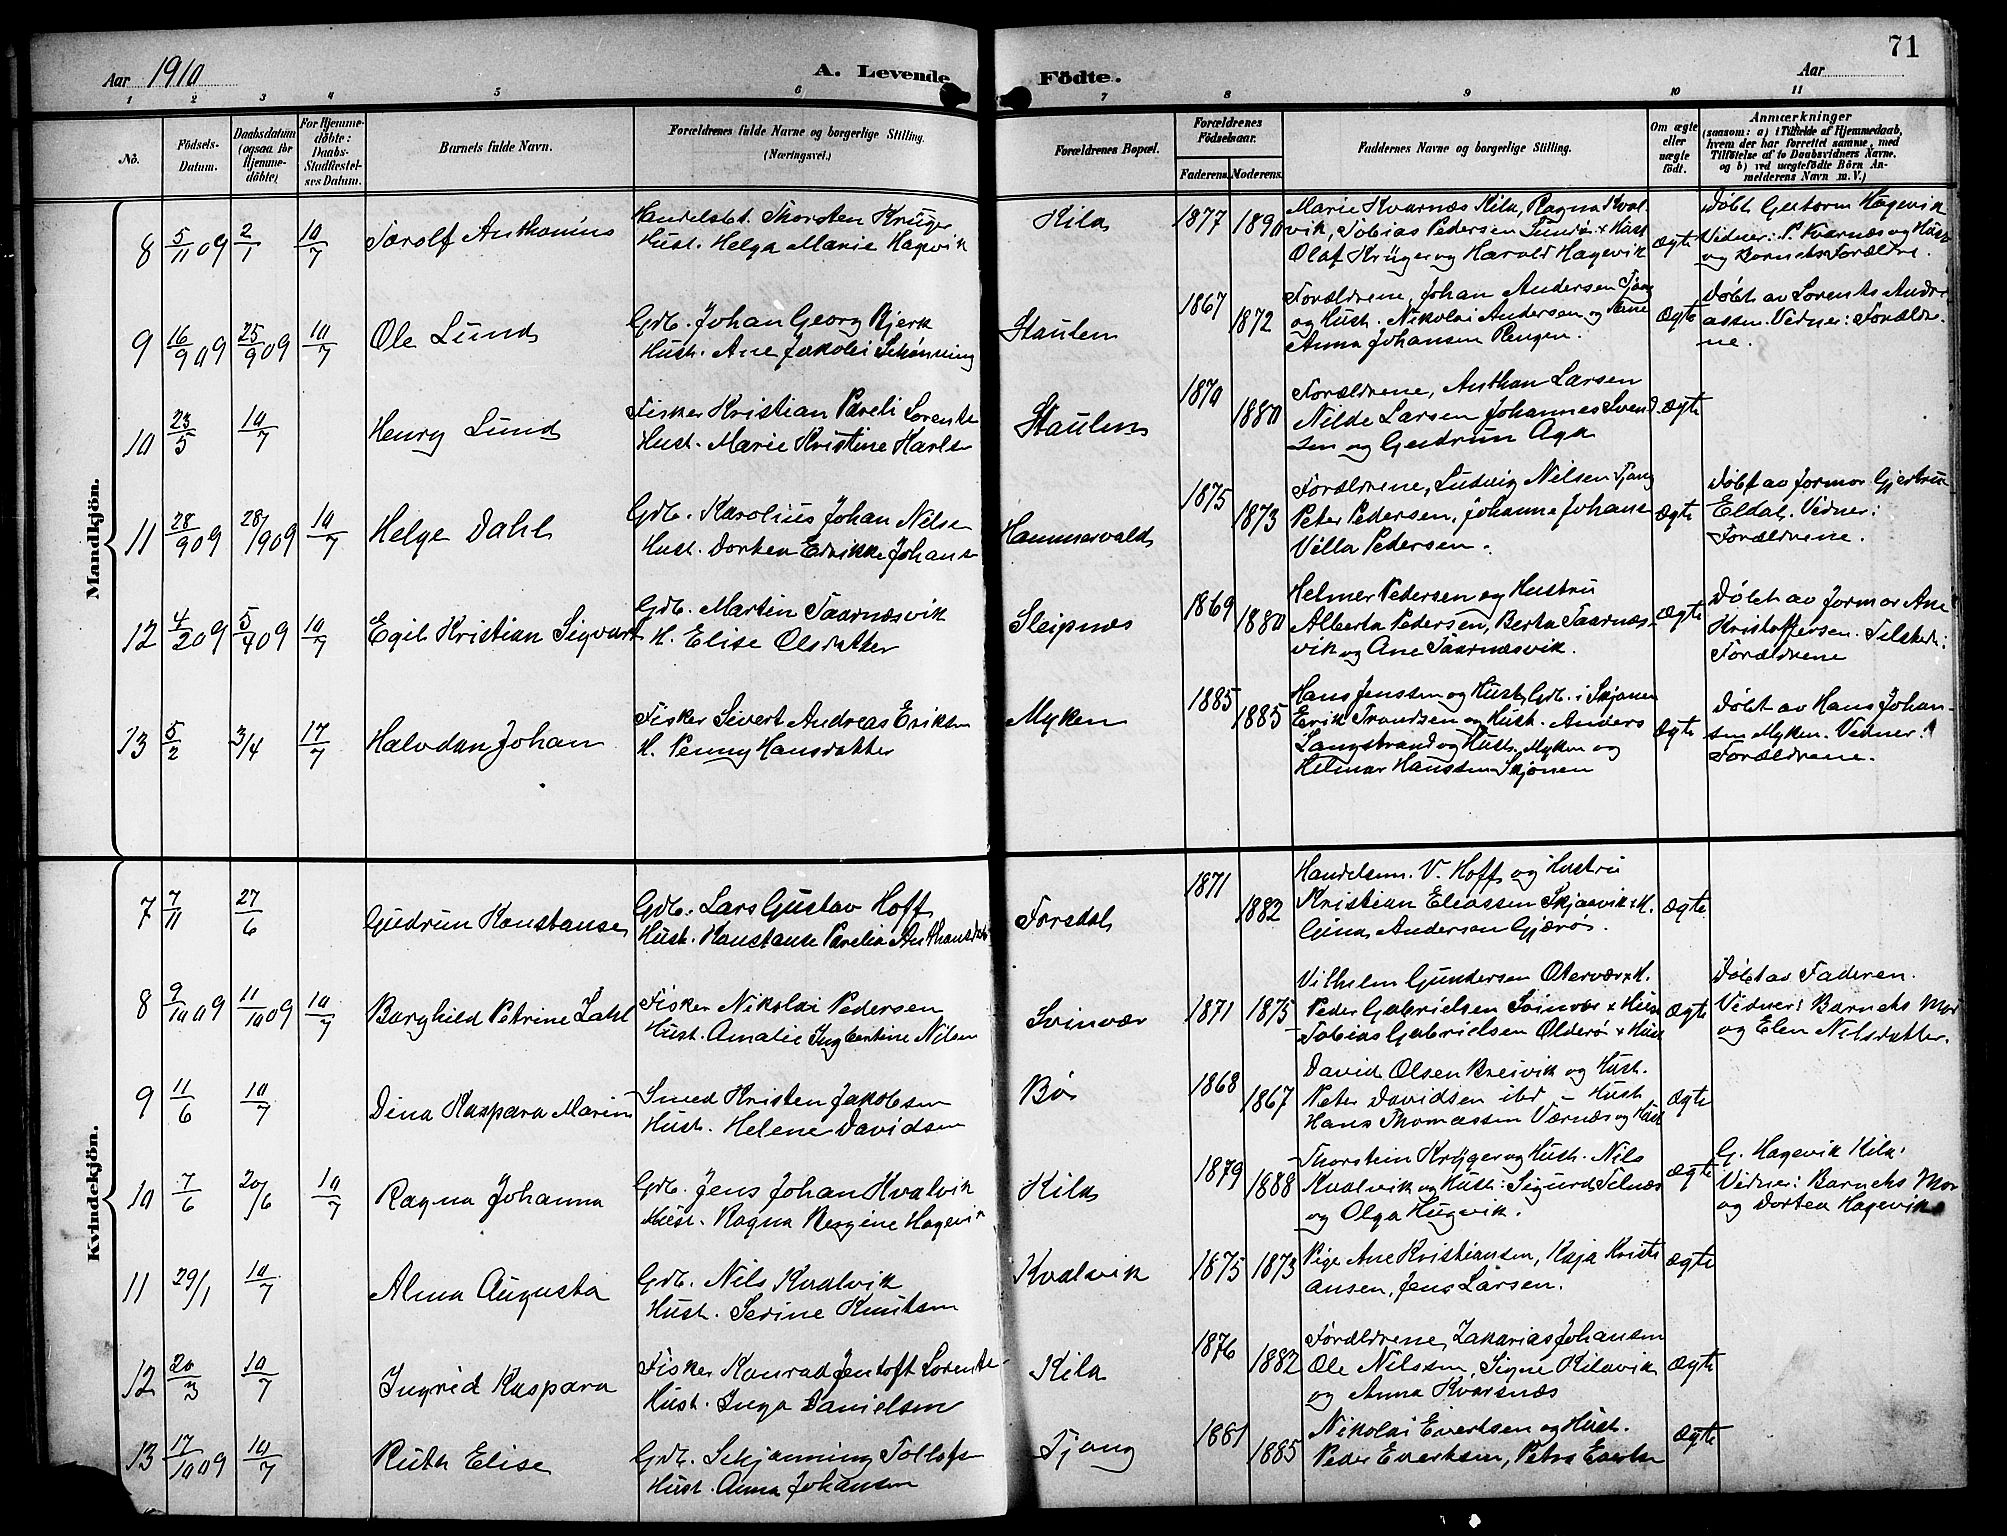 71
Aar 1910 A. Levende Födte. Aar
1 2 3 4 5 6 7 8 9 10 11
No.
Födsels-
Datum.
Daabsdatum
(ogsaa for
Hjemme-
döbte)
For Hjemme-
döbte:
Daabs-
Stadfæstel-
ses Datum.
Barnets fulde Navn.
Forældrenes fulde Navne og borgerlige Stilling.
(Næringsvei.)
Forældrenes Bopæl.
Forældrenes
Födselsaar.
Faderens. Moderens.
Faddernes Navne og borgerlige Stilling.
Om ægte
eller
uægte
födt.
Anmærkninger
(saasom: a) i Tilfælde af Hjemmedaab,
hvem der har forrettet samme, med
Tilföielse af to Daabsvidners Navne.
og b) ved uægtefödte Börn An-
melderens Navn m. V.)
Mandkjön.
8 5/11 09 2/1 10/7 Torolf Anthonius
Handelsbet. Thorsten Krüger
Hust. Helga Marie Hagevik
Kila 1877 1890
Marie Kvarnæs Kila, Ragna Kval-
vik, Tobias Pedersen Sundø + Hust
Olaf Krüger og Harald Hagevik
ægte
Døbt Gustorm Hagevik
Vidner: P. Kvarnæs og Hust
og Barnets Forældre.
9 16/9 09 25/9 09 10/7 Ole Lund
Gdb. Johan Georg Bjerk
Hust. Ane Jakobi Schønning
Staulen 1867 1872
Forældrene, Johan Andersen Tjong
og Hust. Nikolai Andersen og Tarne
Anna Johansen Rengen.
ægte
Døbt av Lorents Andre-
assen. Vidner: Forældre-
ne.
10 23/5 10/7 Henry Lund
Fisker Kristian Pareli Lorents
Hust. Marie Kristine Karls
Staulen 1870 1880
Forældrene, Anthon Larsen
Nilde Larsen Johannes Svend-
sen og Gudrun Aga
ægte
11 28/9 09 28/1909 10/7 Helge Dahl
Gdb. Karolius Johan Nilse
Hust. Dortea Edrikke Johans
Hammervald 1875 1873
Forældrene, Ludvig Nilsen Tjong
Peter Pedersen, Johanna Johans
Villa Pedersen.
ægte
Døbt av formor Gjertrud
Eldal. Vidner:
Forældrene.
12 4/2 09 5/4 09 10/7 Egil Kristian Sigvart
Gdb. Martin Taarnæsvik
H. Elise Olsdatter
Sleipnæs 1869 1880
Helmer Pedersen og Hustru
Alberta Pedersen, Berta Taarnæs-
vik og Ane Taarnæsvik.
ægte
Døbt av formor Ane
Kristoffersen. Tilstede:
Forældrene
13 5/2 3/4 17/7 Halvdan Johan
Fisker Sivert Andreas Eriksen
H. Penny Hansdatter
Myken 1885 1885
Hans Jenssen og Hust, Gdb. i Skjonen
Erik Trondsen og Hust. Anders
Langstrand og Hust, Myken og
Helmar Hanssen Skjonen
ægte
Døbt av Hans Johan-
sen Myken. Vidner:
Forældrene.
Kvindekjön.
7 7/11 27/6 Gudrun Konstanse
Gdb. Lars Gustav Hoff
Hust. Konstanse Parelia Anthonsdatter
Forsdal 1871 1882
Handelsm. V. Hoff og Hustru
Kristian Eliassen Skjaavik + H.
Gina Andersen Gjærø.
ægte
8 9/10 09 11/10 09 10/7 Borghild Petrine Zahl
Fisker Nikolai Pedersen
Hust. Amalie Ingbertine Nilsen
Svinvær 1871 1875
Vilhelm Gundersen Otervær + H.
Peder Gabrielsen Svinvær + Hust
Tobias Gabrielsen Olderø + Hust
ægte
Døbt av Faderen.
Vidner: Barnets Mor
og Elen Nilsdatter.
9 11/6 10/7 Dina Kaspara Marine
Smed Kristen Jakobsen
Hust. Helene Davidsen
Bø 1868 1867
David Olsen Breivik og Hust.
Peter Davidsen ibd - Hust
Hans Thomassen Værnes og Hust
ægte
10 7/6 20/6 10/7 Ragna Johanna
Gdb. Jens Johan Kvalvik
Hust. Ragna Bergine Hagevik
Kila 1879 1888
Thorstein Krøger og Hust. Nils
Kvalvik og Hust: Sigurd Selnæs
og Olga Hugvik.
ægte
G. Hagevik Kila:
Vidner: Barnets Mor
og Dortea Hagevik
11 29/1 10/7 Alma Augusta
Gdb. Nils Kvalvik
Hust. Serine Knutsen
Kvalvik 1875 1873
Pige Ane Kristiansen, Kaja Kristi
ansen, Jens Larsen.
ægte
12 20/3 10/7 Ingrid Kaspara
Fisker Konrad Jentoft Lorents-
Hust. Inga Danielsen
Kila 1876 1882
Forældrene, Zakarias Johansen
Ole Nilssen, Signe Kilavik
og Anna Kvarsnæs
ægte
13 17/10 09 10/7 Ruth Elise
Gdb. Schjønning Tollefs
Hust. Anna Johansen
Tjong 1881 1885
Nikolai Evertsen og Hust.
Peder Evertsen, Petra Evertse
ægte